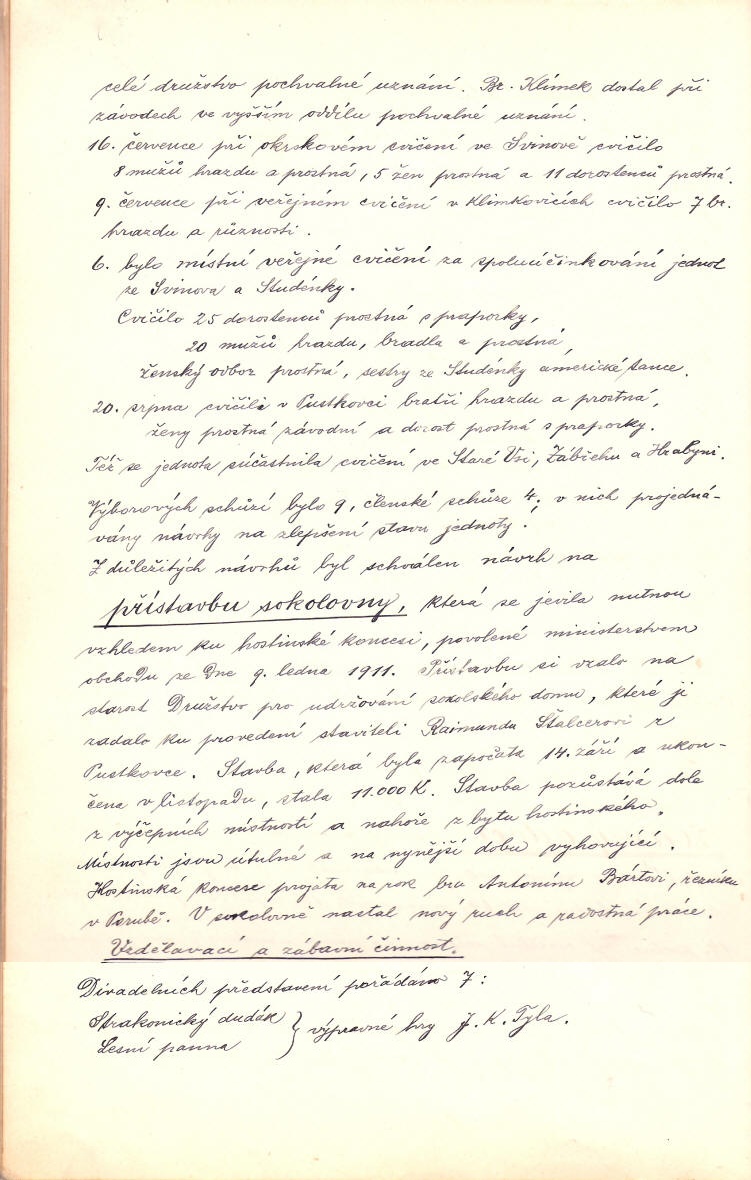 celé družstvo pochvalné uznání. Br. Klímek dostal při
závodech ve vyšším oddílu pochvalné uznání.
16. července při okrskovém cvičení ve Svinově cvičilo
8 mužů hrazdu a prostná, 5 žen prostná a 11 dorostenců prostná.
9. července při veřejném cvičení v Klimkovicích cvičilo 7 br.
hrazdu a různosti.
6. bylo místní veřejné cvičení za spoluúčinkování jednot
ze Svinova a Studénky.
Cvičilo 25 dorostenců prostná s praporky,
20 mužů hrazdu, bradla a prostná,
ženský odbor prostná, sestry ze Studénky americké tance.
20. srpna cvičili v Pustkovci bratři hrazdu a prostná,
ženy prostná závodní a dorost prostná s praporky.
Též se jednota súčastnila cvičení ve Staré Vsi, Zábřehu a Hrabyni.
Výborových schůzí bylo 9, členské schůze 4; v nich projedná-
vány návrhy na zlepšení stavu jednoty.
Z důležitých návrhů byl schválen návrh na
přístavbu sokolovny, která se jevila nutnou
vzhledem ku hostinské koncesi, povolené ministerstvem
obchodu ze dne 9. ledna 1911. Přístavbu si vzalo na
starost Družstvo pro udržování sokolského domu, které ji
zadalo ku provedení staviteli Raimundu Štalcerovi z
Pustkovce. Stavba, která byla započata 14. září a ukon-
čena v listopadu, stála 11.000 K. Stavba pozůstává dole
z výčepních místností a nahoře z bytu hostinského.
Místnosti jsou útulné a na nynější dobu vyhovující.
Hostinská koncese projata na rok bru Antonínu Bártovi, řezníku
v Porubě. V sokolovně nastal nový ruch a radostná práce.
Vzdělavací a zábavní činnost.
Divadelních představení pořádáno 7:
Strakonický dudák } výpravné hry J. K. Tyla.
Lesní panna